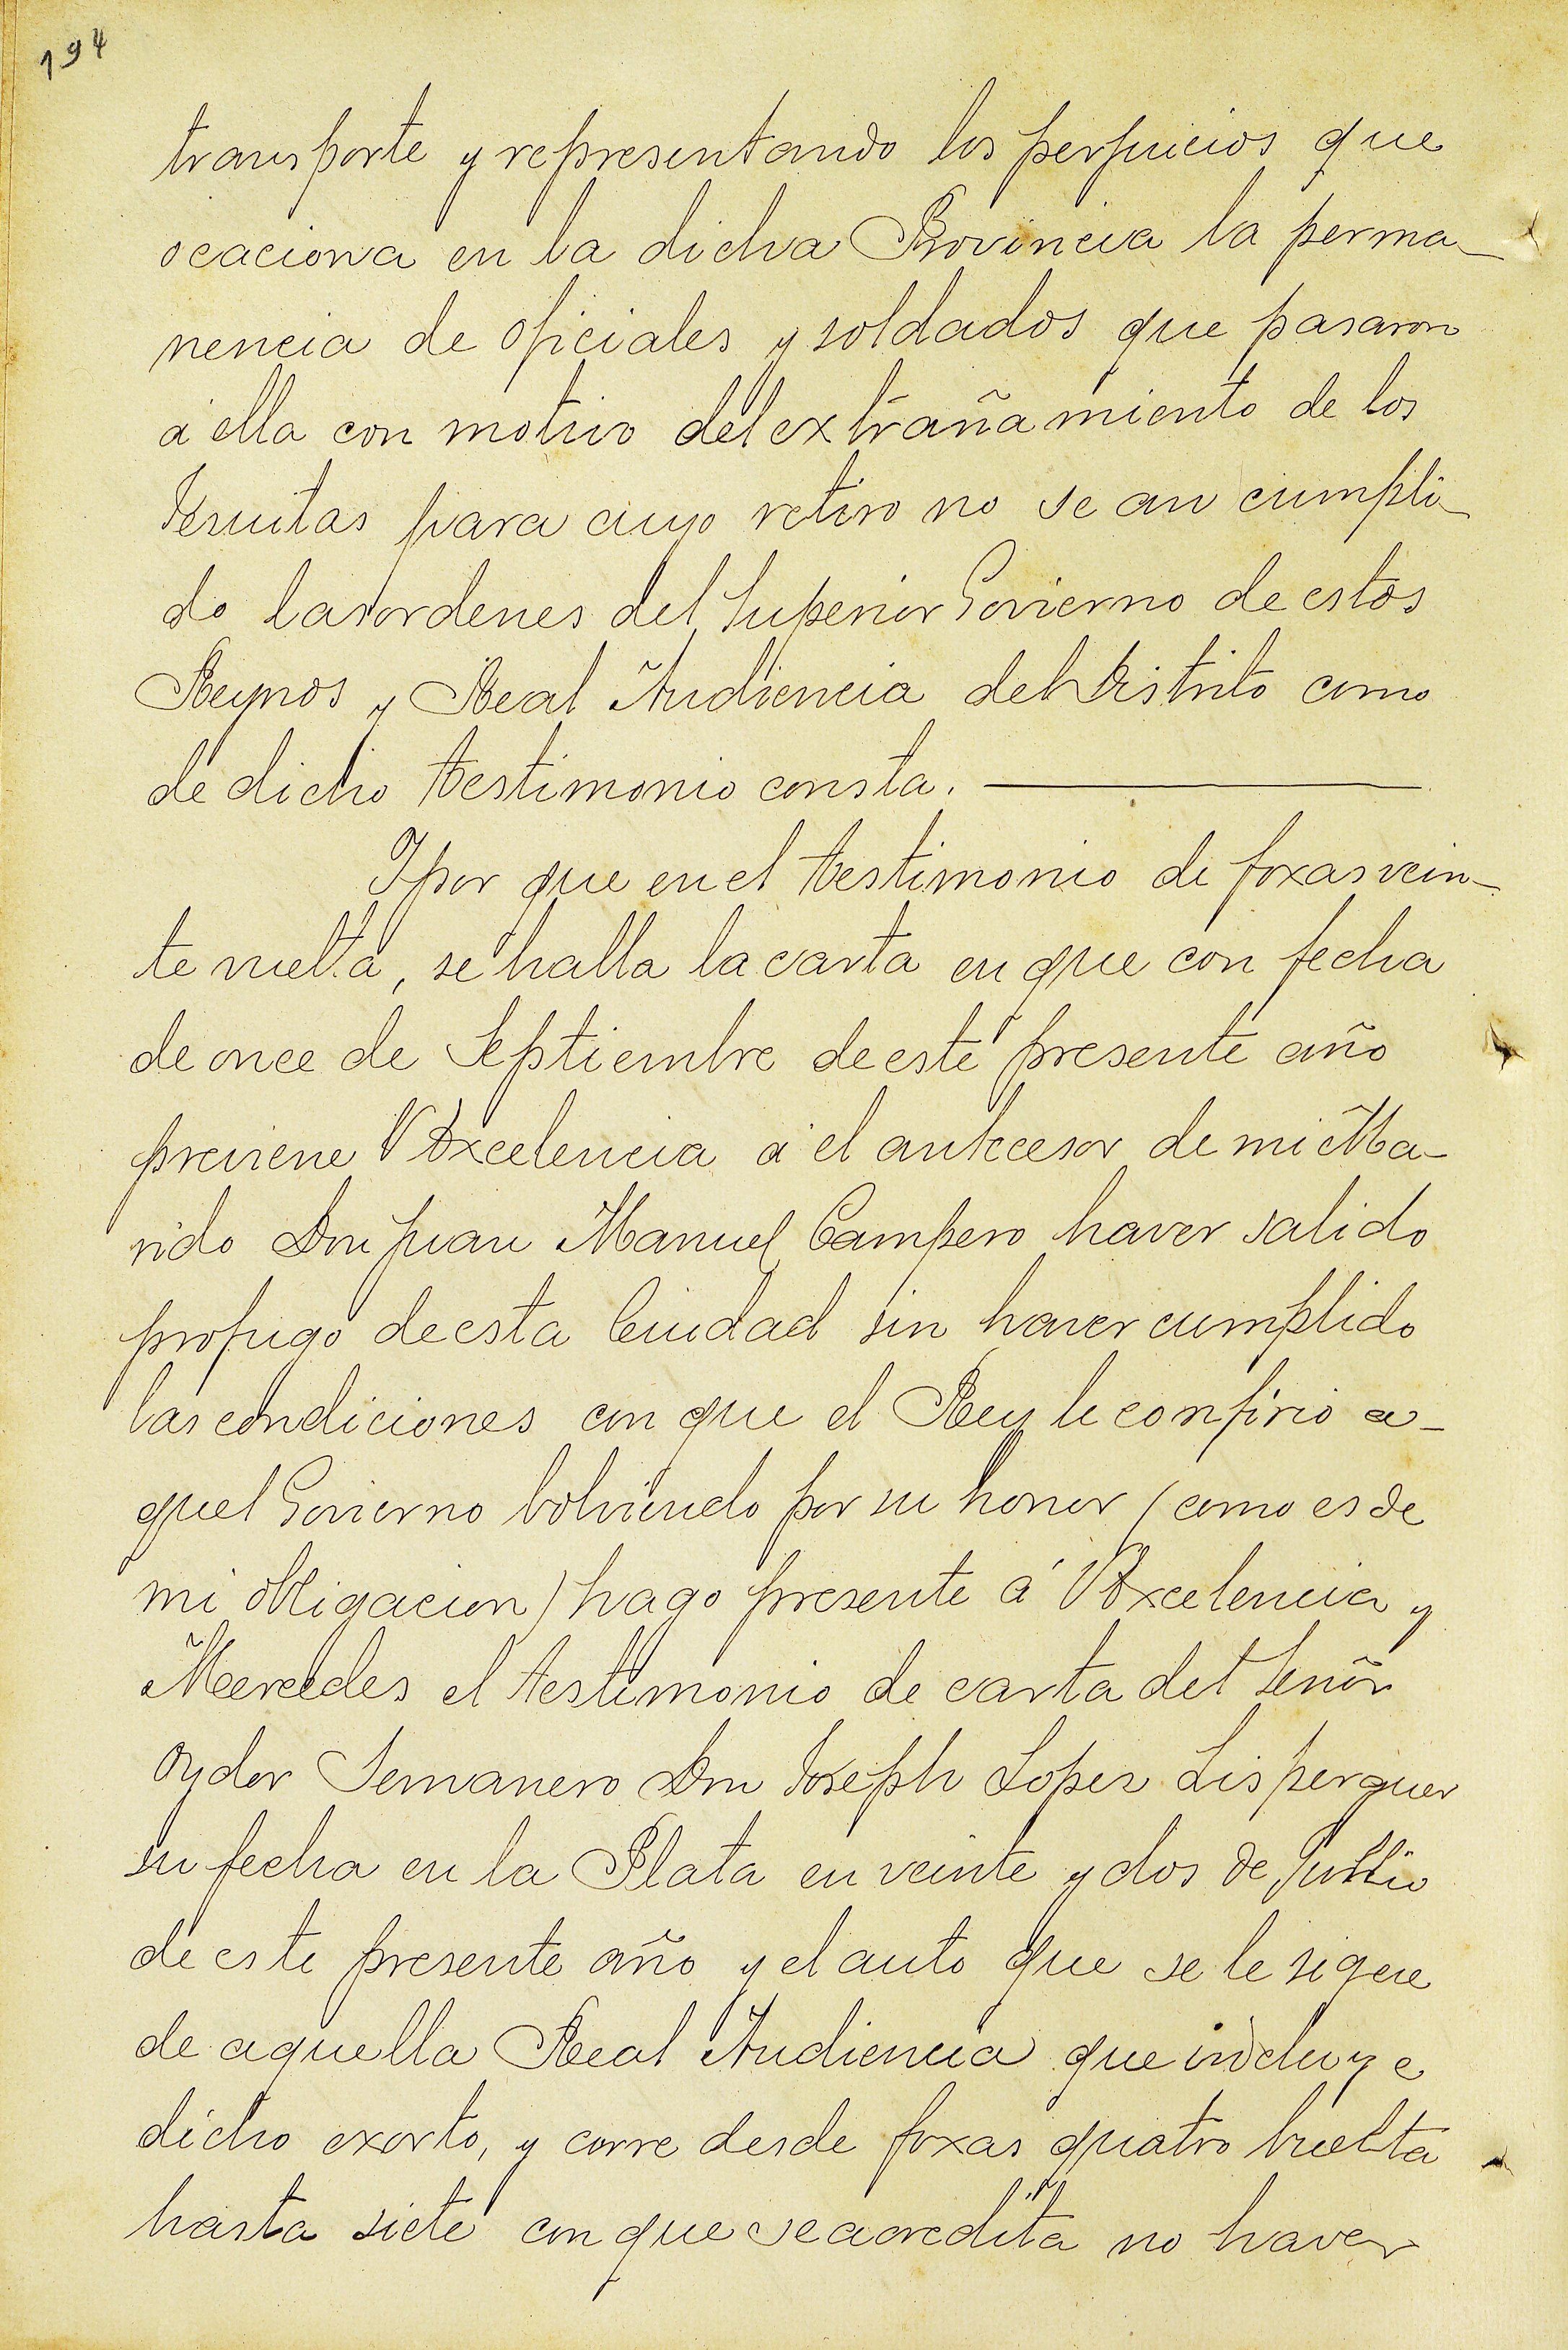 194
transporte y representando los perjuicios que
ocaciona en la dicha Provincia la perma-
nencia de oficiales y soldados que pasaron
á ella con motivo del extrañamiento de los
Jesuitas para cuyo retiro no se an cumpli-
do las ordenes del Superior Govierno de estos
Reynos y Real Audiencia del Distrito como
de dicho testimonio consta.
Y por que en el testimonio de foxas vein-
te vuelta, se halla la carta en que con fecha
de once de Septiembre de este presente año
previene VExcelencia á el antecesor de mi Ma-
rido Don Juan Manuel Campero haver salido
profugo de esta Ciudad sin haver cumplido
las condiciones con que el Rey le confirio a-
quel Govierno bolviendo por su honor (como es de
mi obligacion) hago presente á VExcelencia y
Mercedes el testimonio de carta del Señor
Oydor Semanero Don Joseph Lopez Lisperguer
su fecha en la Plata en veinte y dos de
de este presente año y el auto que se le sigue
de aquella Real Audiencia que incluye
dicho exorto, y corre desde foxas quatro buelta
hasta siete con que se acredita no haver